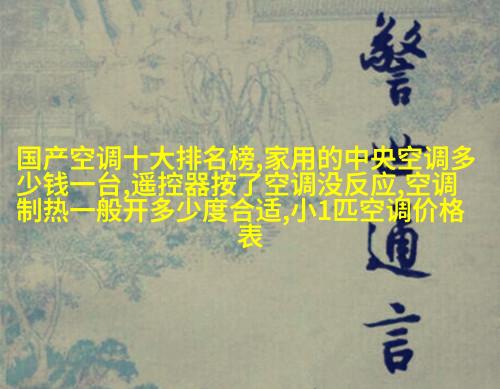 警世通言
国产空调十大排名榜,家用的中央空调多
少钱一台,遥控器按了空调没反应,空调
制热一般开多少度合适,小1匹空调价格
表